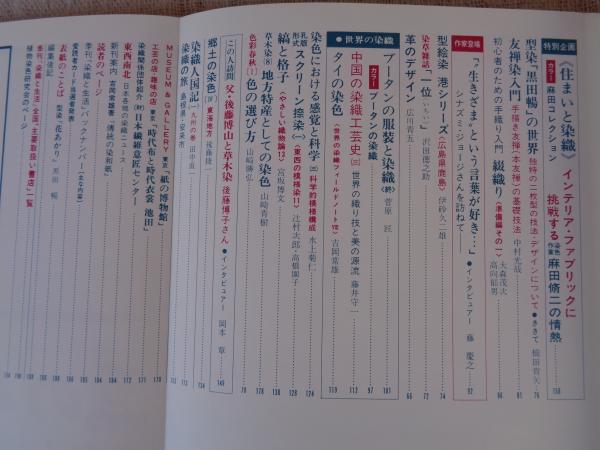 特別企画
《住まいと染織》インテリア・ファブリックに
挑戦する 染色作家 麻田脩二の情熱
カラー 麻田コレクション
158
型染「黒田暢」の世界 独特の二枚型の技法・デザインについて ●ききて 橋田青矢… 76
友禅染入門 手描き友禅(本友禅)の基礎技法 中村光哉… 81
初心者のための手織り入門 綴織り〈準備編その一〉 大森茂次 高向郁男… 85
作家登場
“生きざま”という言葉が好き…
シナズミ・ジョージさんを訪ねて
●インタビュアー 藤 慶之… 92
型絵染 港シリーズ〈広島県鹿島〉 伊砂久二雄… 66
染草雑話「一位」いちい 沢田徳之助… 72
革のデザイン 広川青五… 74
●世界の染織
ブータンの服装と染織〈終〉 菅原 匠… 101
カラー ブータンの染織… 97
中国の染織工芸史〈三〉 世界の織り技と美の源流 藤井守一… 112
タイの染色〈世界の染織フィールドノートⅦ〉 吉岡常雄… 119
染色における感覚と科学〈五〉科学的模様構成 水上菊仁… 124
孔版形式 スクリーン捺染〈一〉〈東西の模様染11〉 辻村次郎・高橋圀子… 128
縞と格子〈やさしい織物論12〉 宮坂博文… 131
草木染〈8〉 地方特産としての染色 山崎青樹… 138
色彩春秋〈1〉 色の選び方 山崎勝弘… 70
この人訪問 父・後藤博山と草木染 後藤博子さん ●インタビュアー 岡本 章… 149
郷土の染色〈四〉東海地方 後藤捷一… 134
染織人国記〈九州の巻〉 田中直一
染織の旅
MUSEUM & GALLERY 東京「紙の博物館」
工芸の店・趣味の店 東京「時代布と時代衣裳 池田」
染織関係団体紹介 (財)日本繊維意匠センター
東西南北 日本各地の染織ニュース
新刊案内
読者のページ
季刊『染織と生活』バックナンバー〈主な内容〉
愛読者カード当選者発表
編集後記
表紙のことば 型染「花あかり」黒田 暢
季刊『染織と生活』全国・主要取扱い書店一覧
植物染色研究会のページ